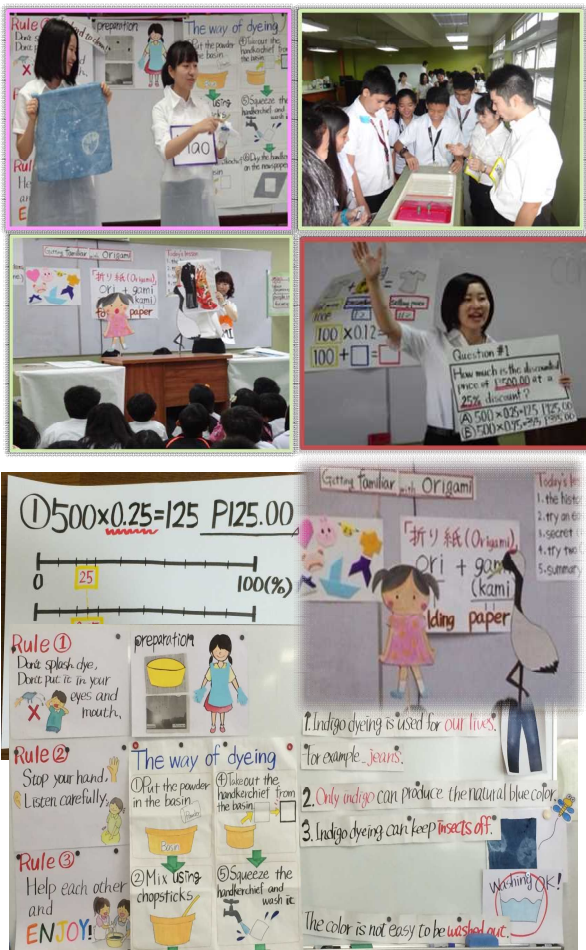 Rule
Don't
preparation
The way of dyeing
Put the powder
in the basin
④Takeout the
handkerchief from
the basin
using
⑤Squeeze the
handkerchief and
wash it
100
Rule
He
and
Getting familiar with Origami
「折り紙(Origami)」
ori + gami
(kami)
paper
Today's lesson
100 × 0.12=
100 + =
Question #1
How much is the discounted
price of P500.00 at a
25% discount?
Ⓐ 500×0.25=125 P125.00
①500×0.25=125 P125.00
0
25
100(%)
Getting familiar with Origami
「折り紙(Origami)」
ori + gam
(kami
lding paper
Today's les
1. the histo
2. try an
3. secret
4. try two
5. summary
Rule ①
Don't splash dye,
Don't put it in your
eyes and
mouth.
preparation
Rule ②
Stop your hand,
Listen carefully.
Rule ③
Help each other
and
ENJOY!
The way of dyeing
①Put the powder
in the basin
Basin
②Mix using
chopsticks
④Takeout the
handkerchief from
the basin
⑤Squeeze the
handkerchief and
wash it
1. Indigo dyeing is used for our lives.
For example...jeans.
2. Only indigo can produce the natural blue color
3. Indigo dyeing can keep insects off.
Washing OK!
The color is not easy to be washed out.